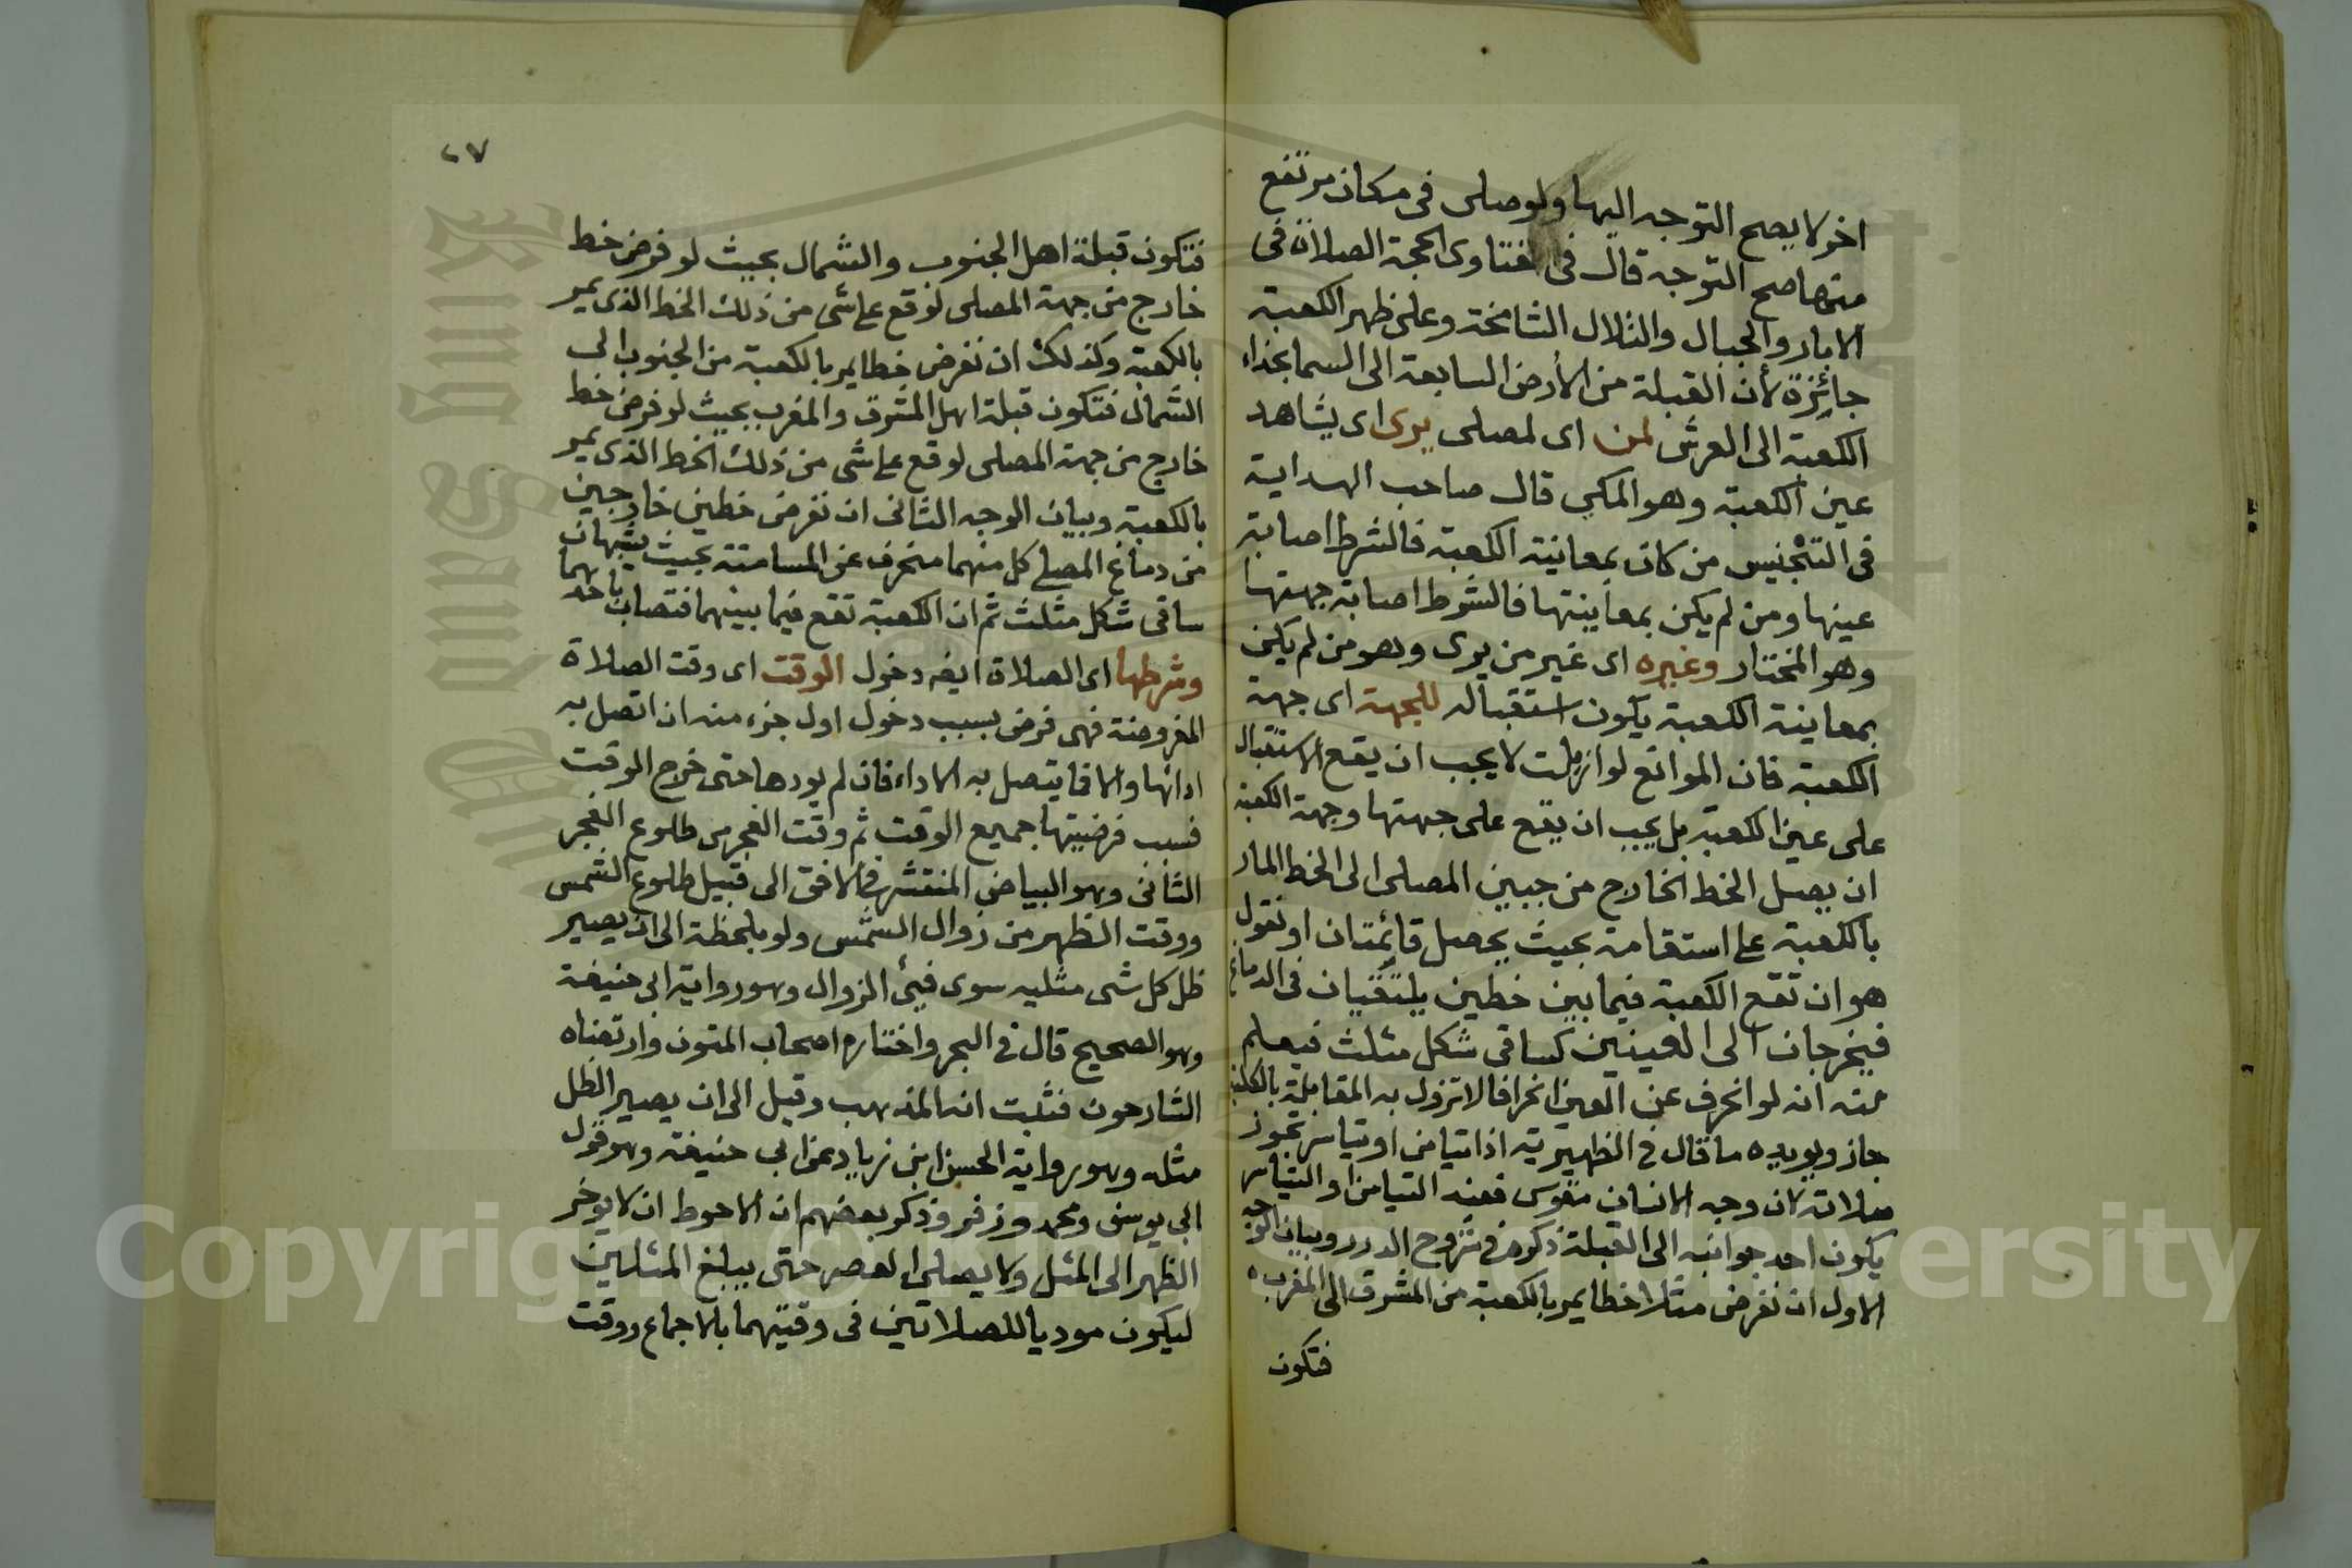 اخر لا يصح التوجه اليها ولو صلى فى مكان مرتفع
منها صح التوجه قال فى الفتاوى الحجة الصلاة فى
الابار والجبال والتلال الشامخة وعلى ظهر الكعبة
جائزة لأن القبلة من الأرض السابعة الى السما بحذاء
الكعبة الى العرش لمن اى لمصلى يرى اى يشاهد
عين الكعبة وهو المكي قال صاحب الهداية
فى التجنيس من كان بمعاينة الكعبة فالشرط اصابة
عينها ومن لم يكن بمعاينتها فالشرط اصابة جهتها
وهو المختار وغيره اى غير من يرى وهو من لم يكن
بمعاينة الكعبة يكون استقباله للجهة اى جهة
الكعبة فان الموانع لو ازيلت لا يجب ان يقع الاستقبال
على عين الكعبة بل يجب ان يقع على جهتها وجهة الكعبة
ان يصل الخط الخارج من جبين المصلى الى الخط المار
بالكعبة على استقامة بحيث يحصل قائمتان او نقول
هو ان تقع الكعبة فيما بين خطين يلتقيان فى الدماغ
فيخرجان الى العينين كساقى شكل مثلث فيعلم
منه انه لو انحرف عن العين انحرافا لا تزول به المقابلة بالكلية
جاز ويويده ما قال فى الظهيرية اذا تيامن او تياسر تجوز
صلاته لان وجه الانسان مقوس فعند التيامن او التياسر
يكون احد جوانبه الى القبلة ذكره فى شروح الدرر وبيان الوجه
الاول ان نفرض مثلا خطا يمر بالكعبة من المشرق الى المغرب
فتكون
٢٧
فتكون قبلة اهل الجنوب والشمال بحيث لو فرض خط
خارج من جهة المصلى لوقع على شى من ذلك الخط الذى يمر
بالكعبة وكذلك ان نفرض خطا يمر بالكعبة من الجنوب الى
الشمال فتكون قبلة اهل المشرق والمغرب بحيث لو فرض خط
خارج من جهة المصلى لوقع على شى من ذلك الخط الذى يمر
بالكعبة وبيان الوجه الثانى ان نفرض خطين خارجين
من دماغ المصلى كل منهما منحرف عن المسامتة بحيث يشبهان
ساقى شكل مثلث ثم ان الكعبة تقع فيما بينهما فتصاب باحدهما
وشرطها اى الصلاة ايضا دخول الوقت اى وقت الصلاة
المفروضة فهى فرض بسبب دخول اول جزء منه ان اتصل به
ادائها والا فما يتصل به الاداء فان لم يودها حتى خرج الوقت
فسبب فرضيتها جميع الوقت ثم وقت الفجر من طلوع الفجر
الثانى وهو البياض المنتشر فى الافق الى قبيل طلوع الشمس
ووقت الظهر من زوال الشمس ولو بلحظة الى ان يصير
ظل كل شى مثليه سوى فيئ الزوال وهو رواية ابى حنيفة
وهو الصحيح قال فى البحر واختاره اصحاب المتون وارتضاه
الشارحون فثبت انه المذهب وقيل الى ان يصير الظل
مثله وهو رواية الحسن ابن زياد عن ابى حنيفة وهو قول
ابى يوسف ومحمد وزفر وذكر بعضهم ان الاحوط ان لا يوخر
الظهر الى المثل ولا يصلى العصر حتى يبلغ المثلين
ليكون موديا للصلاتين فى وقتيهما بالاجماع ووقت